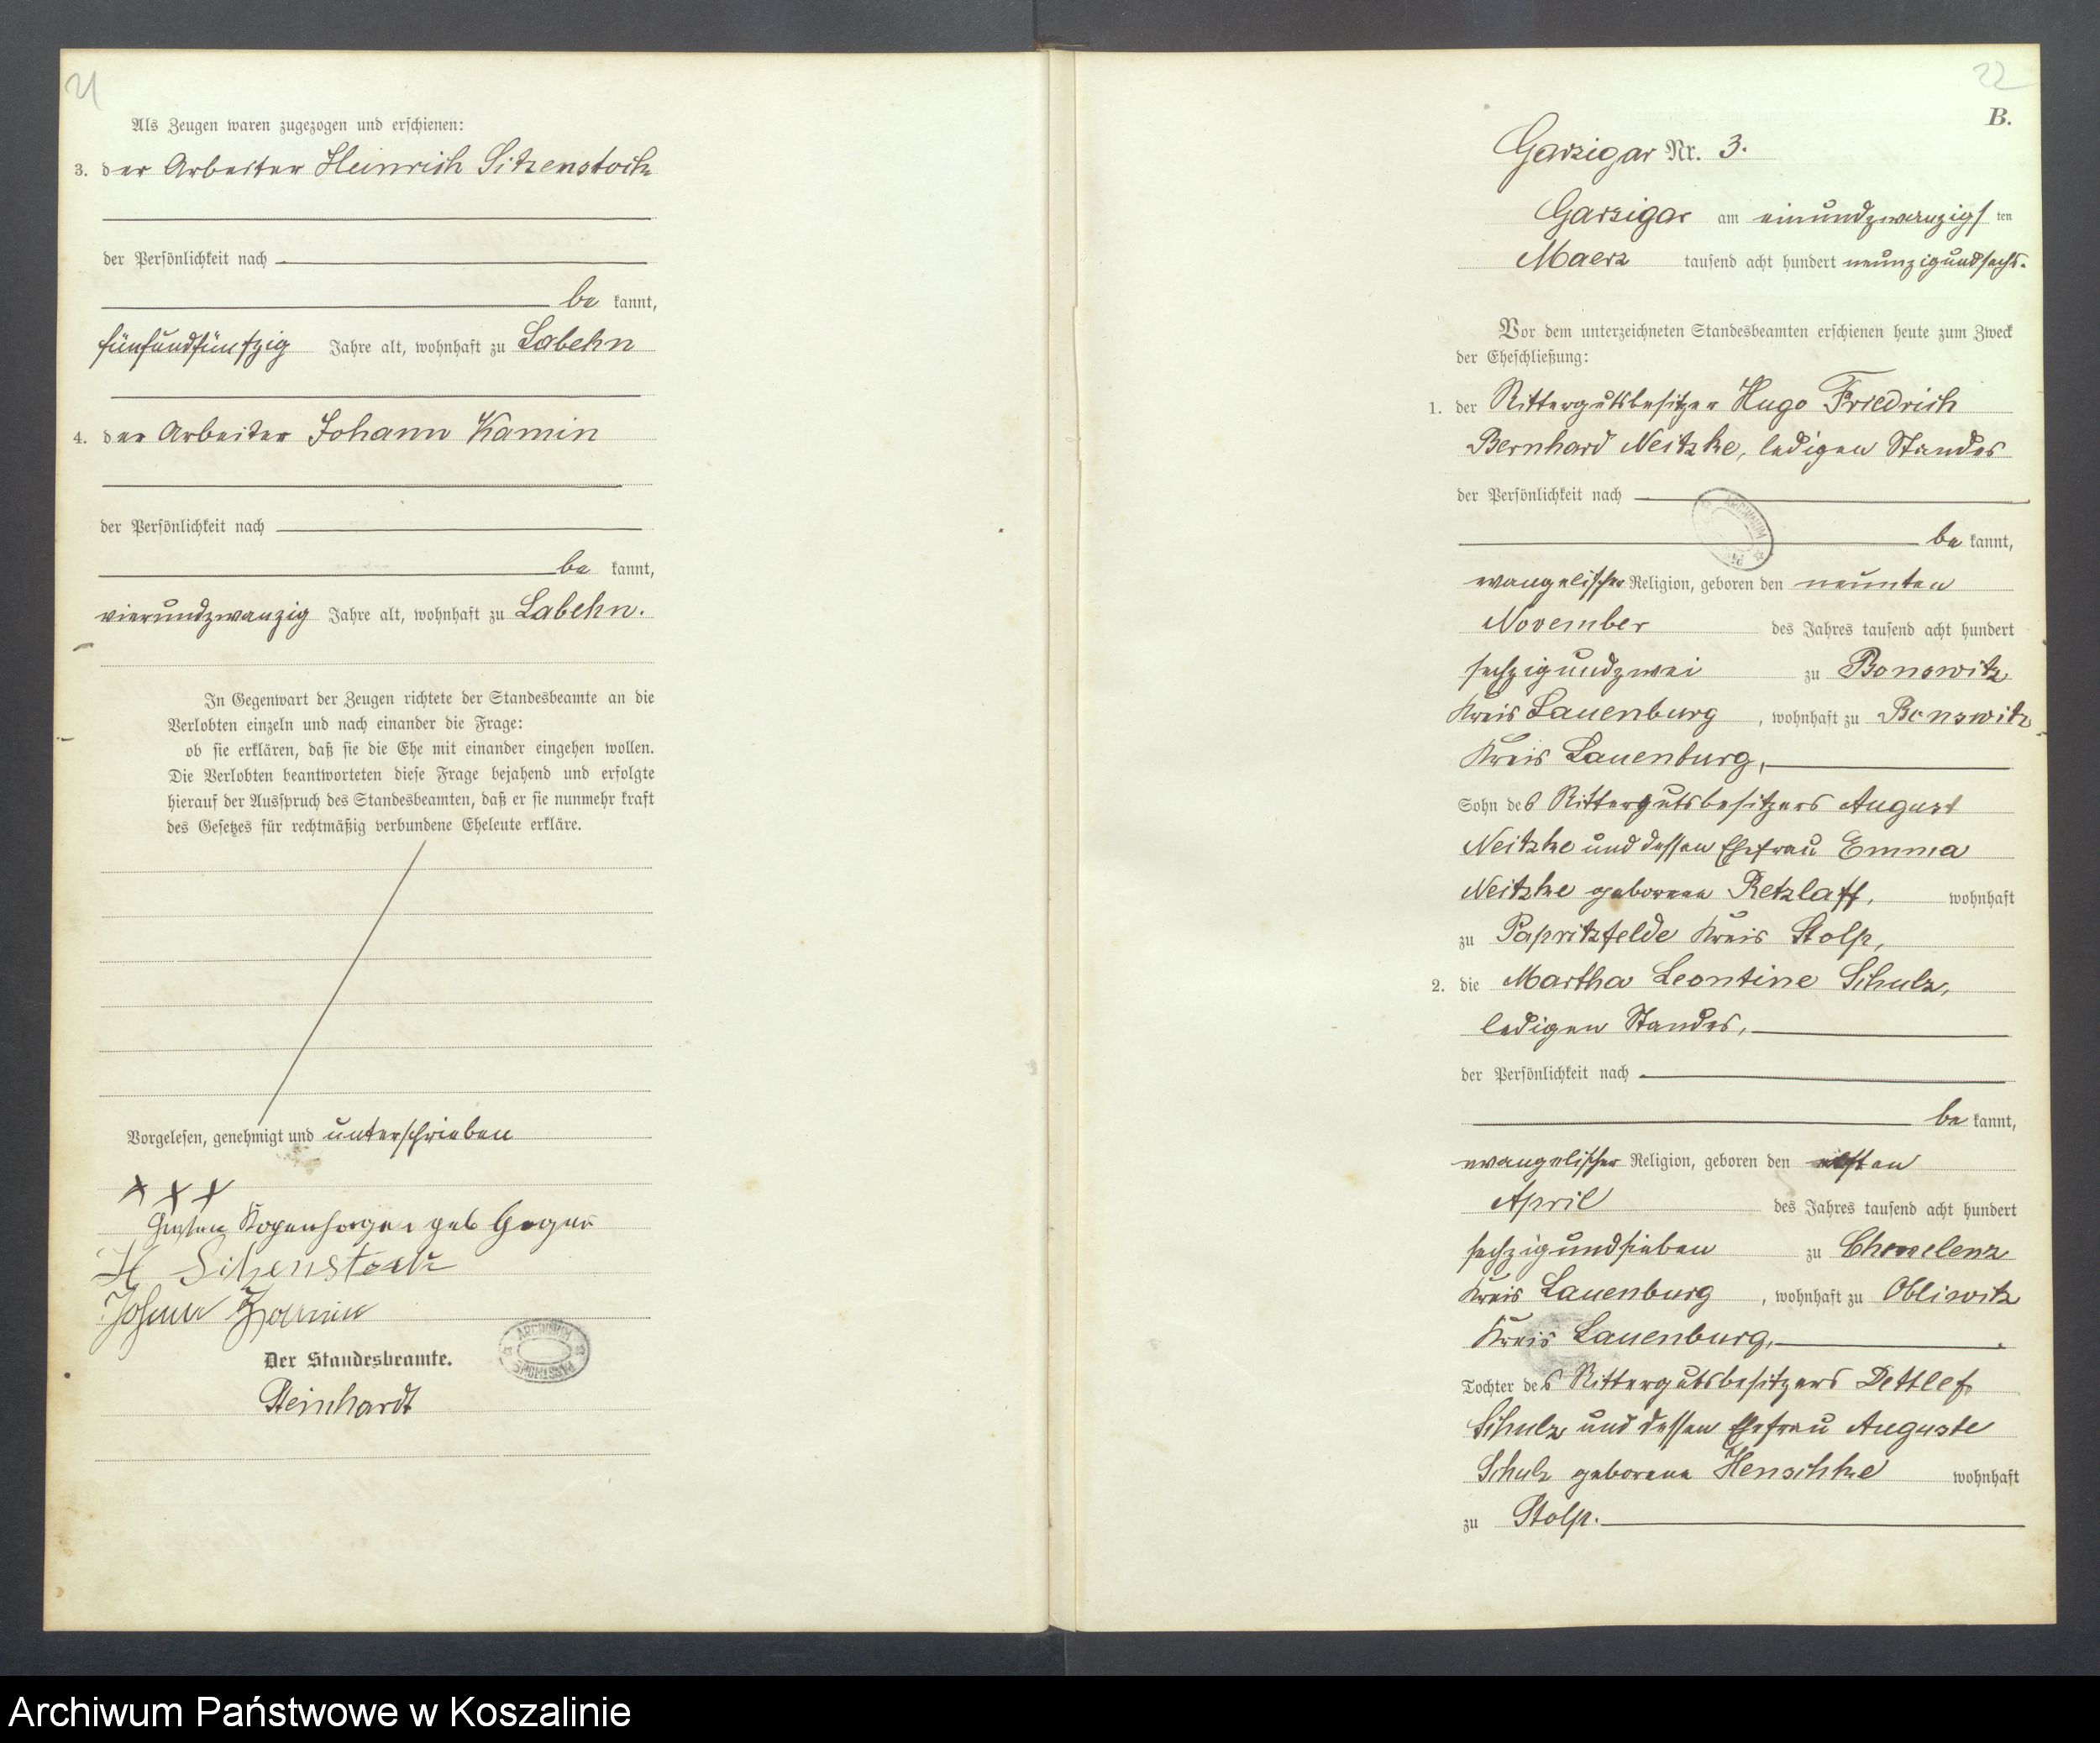 21
Als Zeugen waren zugezogen und erschienen:
3. der Arbeiter Heinrich Sitzenstock
der Persönlichkeit nach
be kannt,
fünfundfünfzig Jahre alt, wohnhaft zu Labehn
4. der Arbeiter Johann Kamin
der Persönlichkeit nach
be kannt,
vierundzwanzig Jahre alt, wohnhaft zu Labehn.
In Gegenwart der Zeugen richtete der Standesbeamte an die
Verlobten einzeln und nach einander die Frage:
ob sie erklären, daß sie die Ehe mit einander eingehen wollen.
Die Verlobten beantworteten diese Frage bejahend und erfolgte
hierauf der Ausspruch des Standesbeamten, daß er sie nunmehr kraft
des Gesetzes für rechtmäßig verbundene Eheleute erkläre.
Vorgelesen, genehmigt und unterschrieben
+ + +
geb
H Sitzenstock
Johann Kamin
Der Standesbeamte.
Steinhardt
ARCHIWUM PAŃSTWOWE
22
B.
Garzigar Nr. 3.
Garzigar am einundzwanzigs ten
Maerz tausend acht hundert neunzigundsechs.
Vor dem unterzeichneten Standesbeamten erschienen heute zum Zweck
der Eheschließung:
1. der Rittergutsbesitzer Hugo Friedrich
Bernhard Neitzke, ledigen Standes
der Persönlichkeit nach
be kannt,
evangelischer Religion, geboren den neunten
November des Jahres tausend acht hundert
sechzigundzwei zu Bonswitz
Kreis Lauenburg, wohnhaft zu Bonswitz
Kreis Lauenburg,
Sohn des Rittergutsbesitzers August
Neitzke und dessen Ehefrau Emma
Neitzke geborene Retzlaff, wohnhaft
zu Papritzfelde Kreis Stolp,
2. die Martha Leontine Schulz,
ledigen Standes,
der Persönlichkeit nach
be kannt,
evangelischer Religion, geboren den elften
April des Jahres tausend acht hundert
sechzigundsieben zu Chmelenz
Kreis Lauenburg, wohnhaft zu Obliwitz
Kreis Lauenburg,
Tochter des Rittergutsbesitzers Dettlef
Schulz und dessen Ehefrau Auguste
Schulz geborene Henschke wohnhaft
zu Stolp.
Archiwum Państwowe w Koszalinie